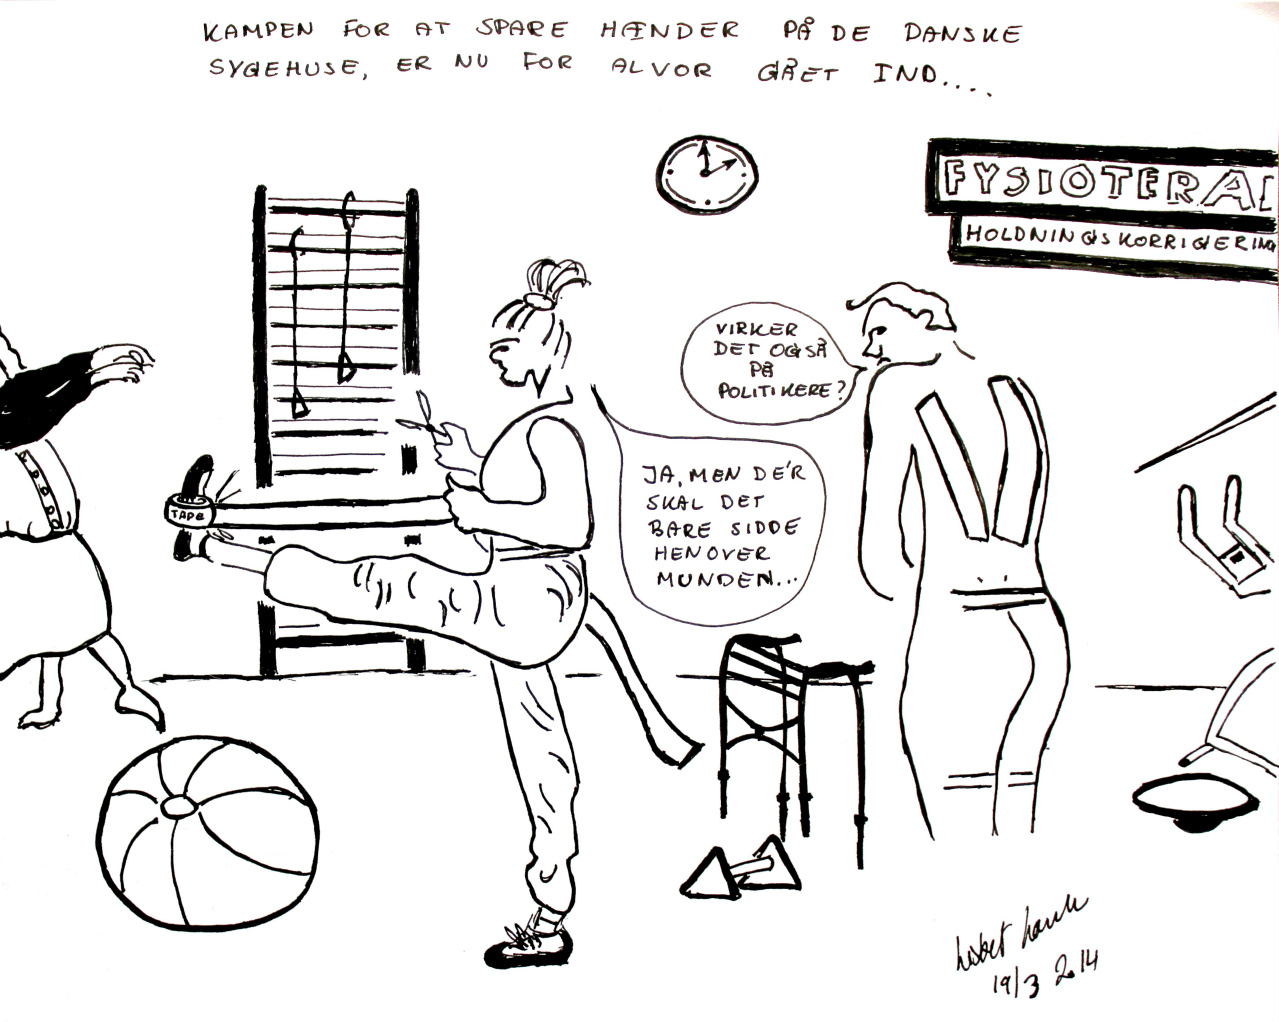 KAMPEN FOR AT SPARE HÆNDER PÅ DE DANSKE
SYGEHUSE, ER NU FOR ALVOR GÅET IND....
FYSIOTERA
HOLDNINGSKORRIGERING
VIRKER
DET OGSÅ
PÅ
POLITIKERE?
JA, MEN DE'R
SKAL DET
BARE SIDDE
HEN OVER
MUNDEN...
TAPE
19/3 2014